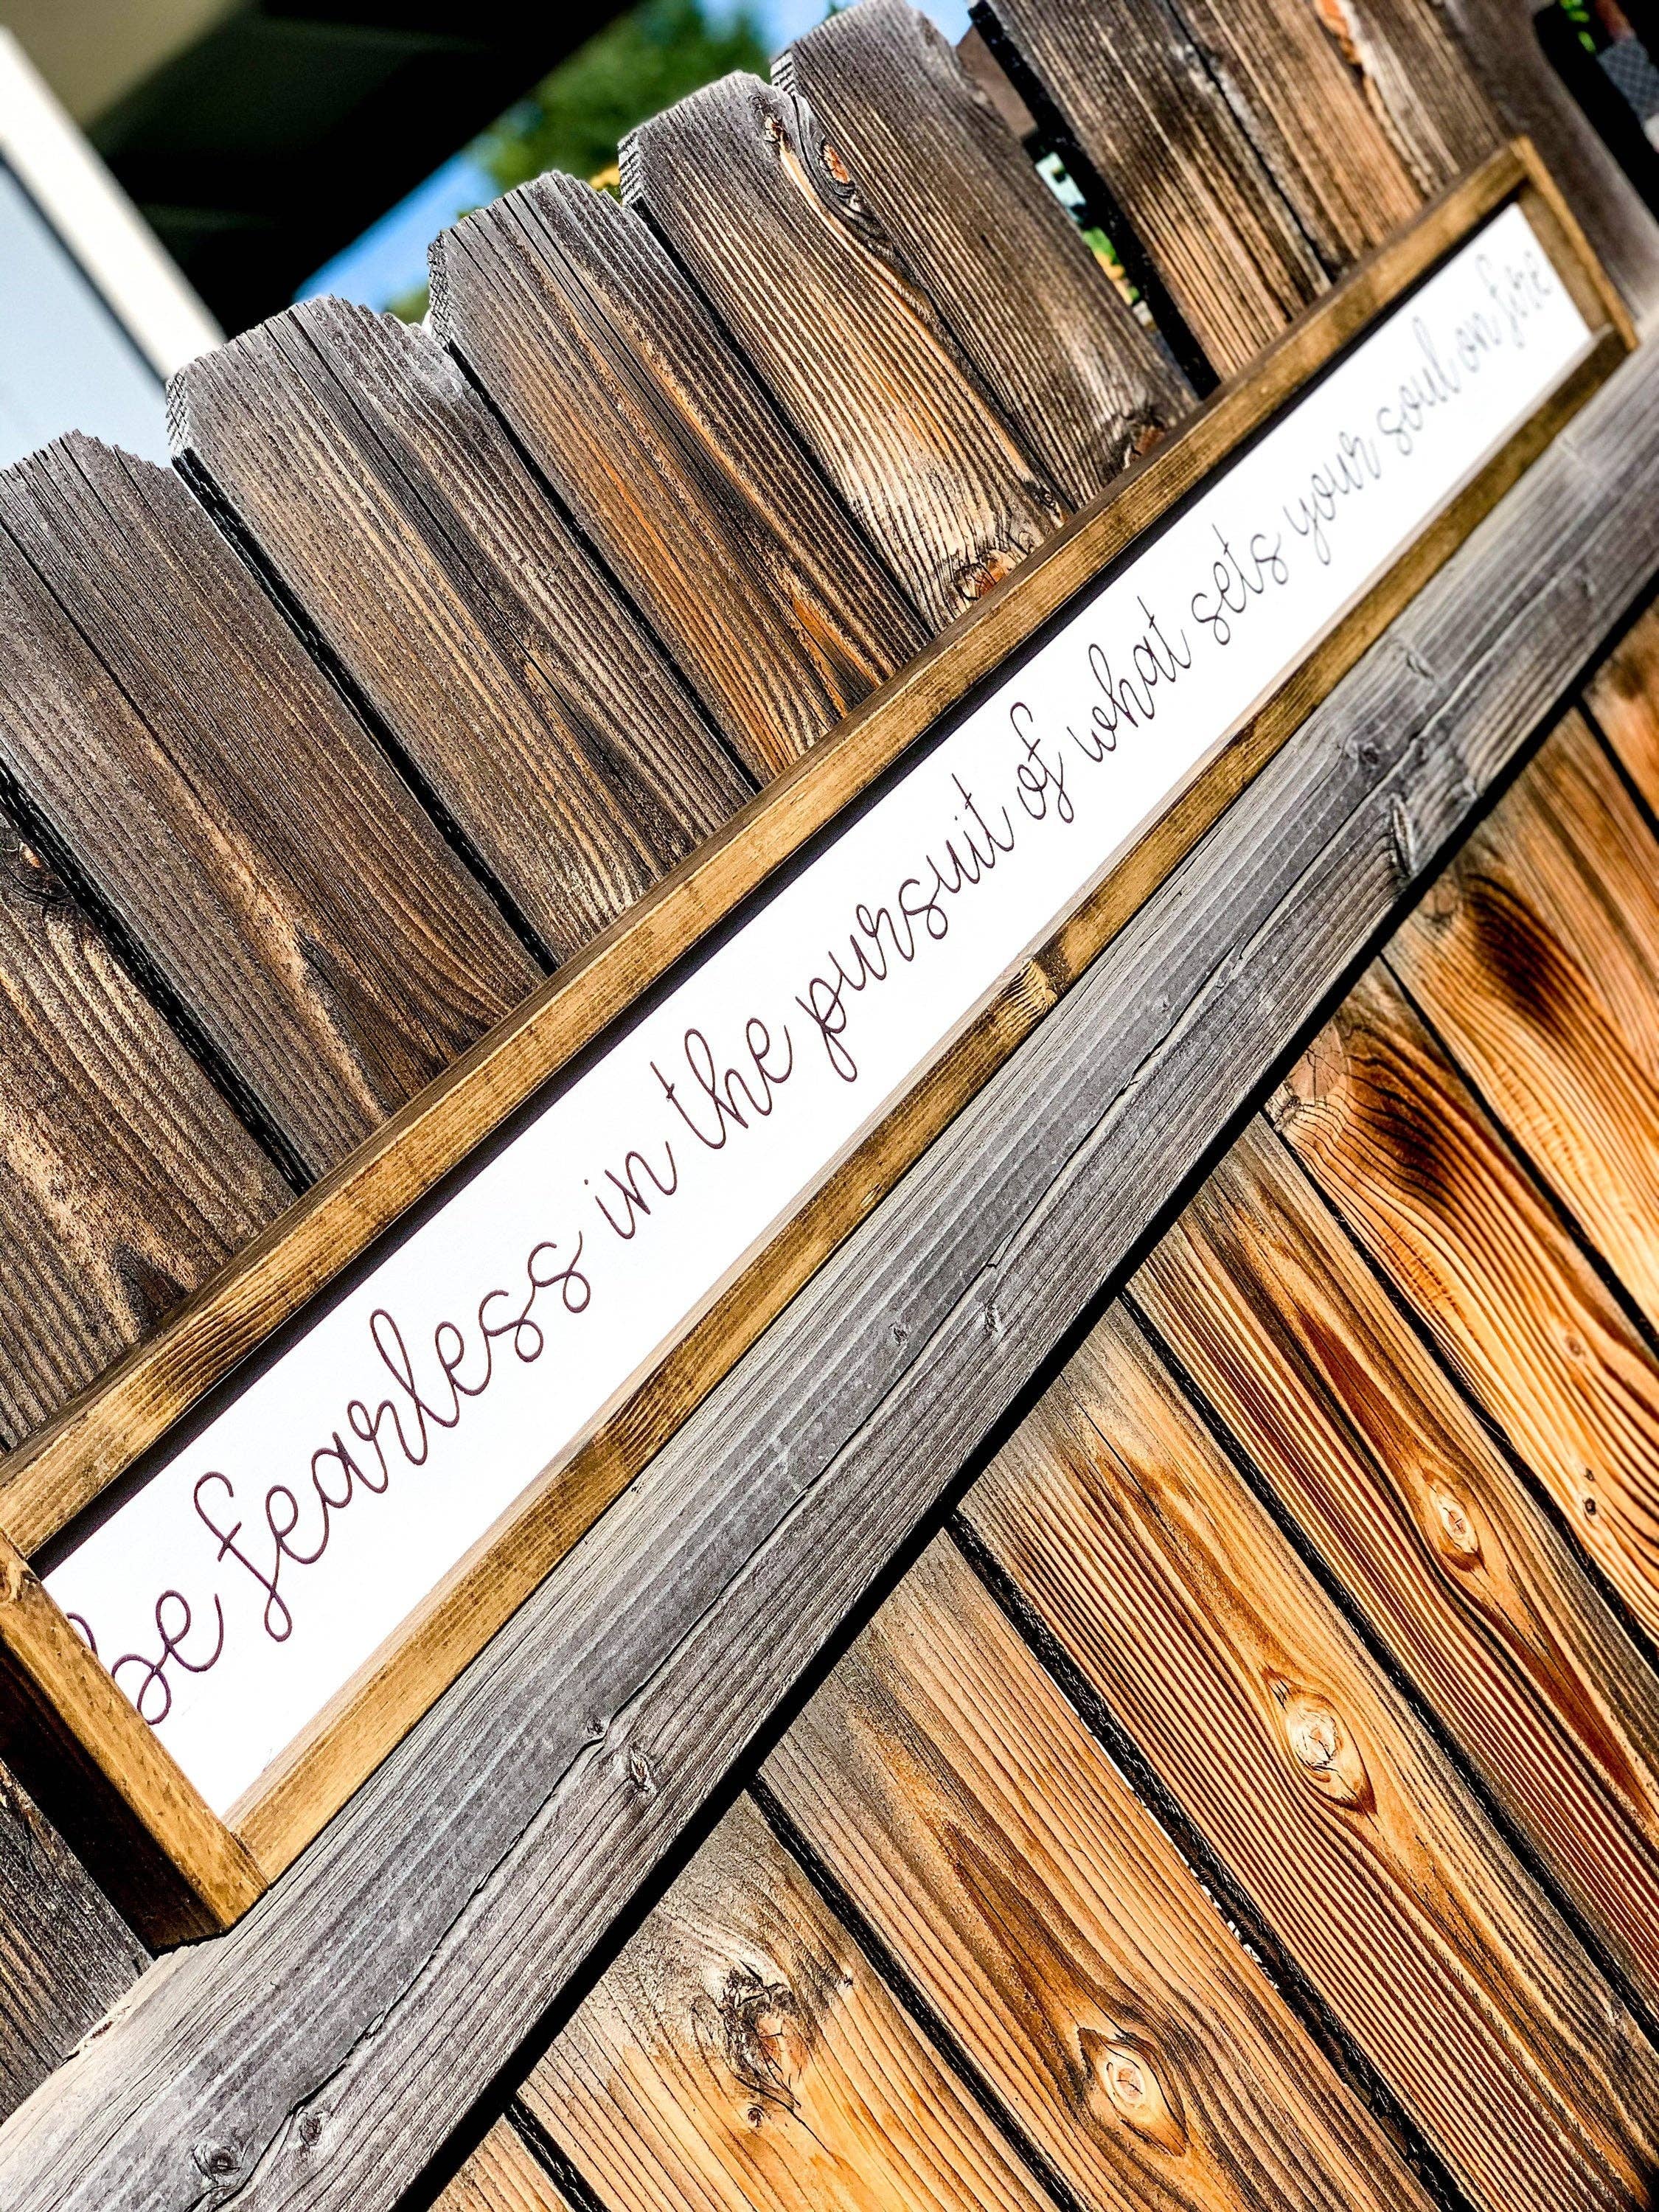 be fearless in the pursuit of what sets your soul on fire